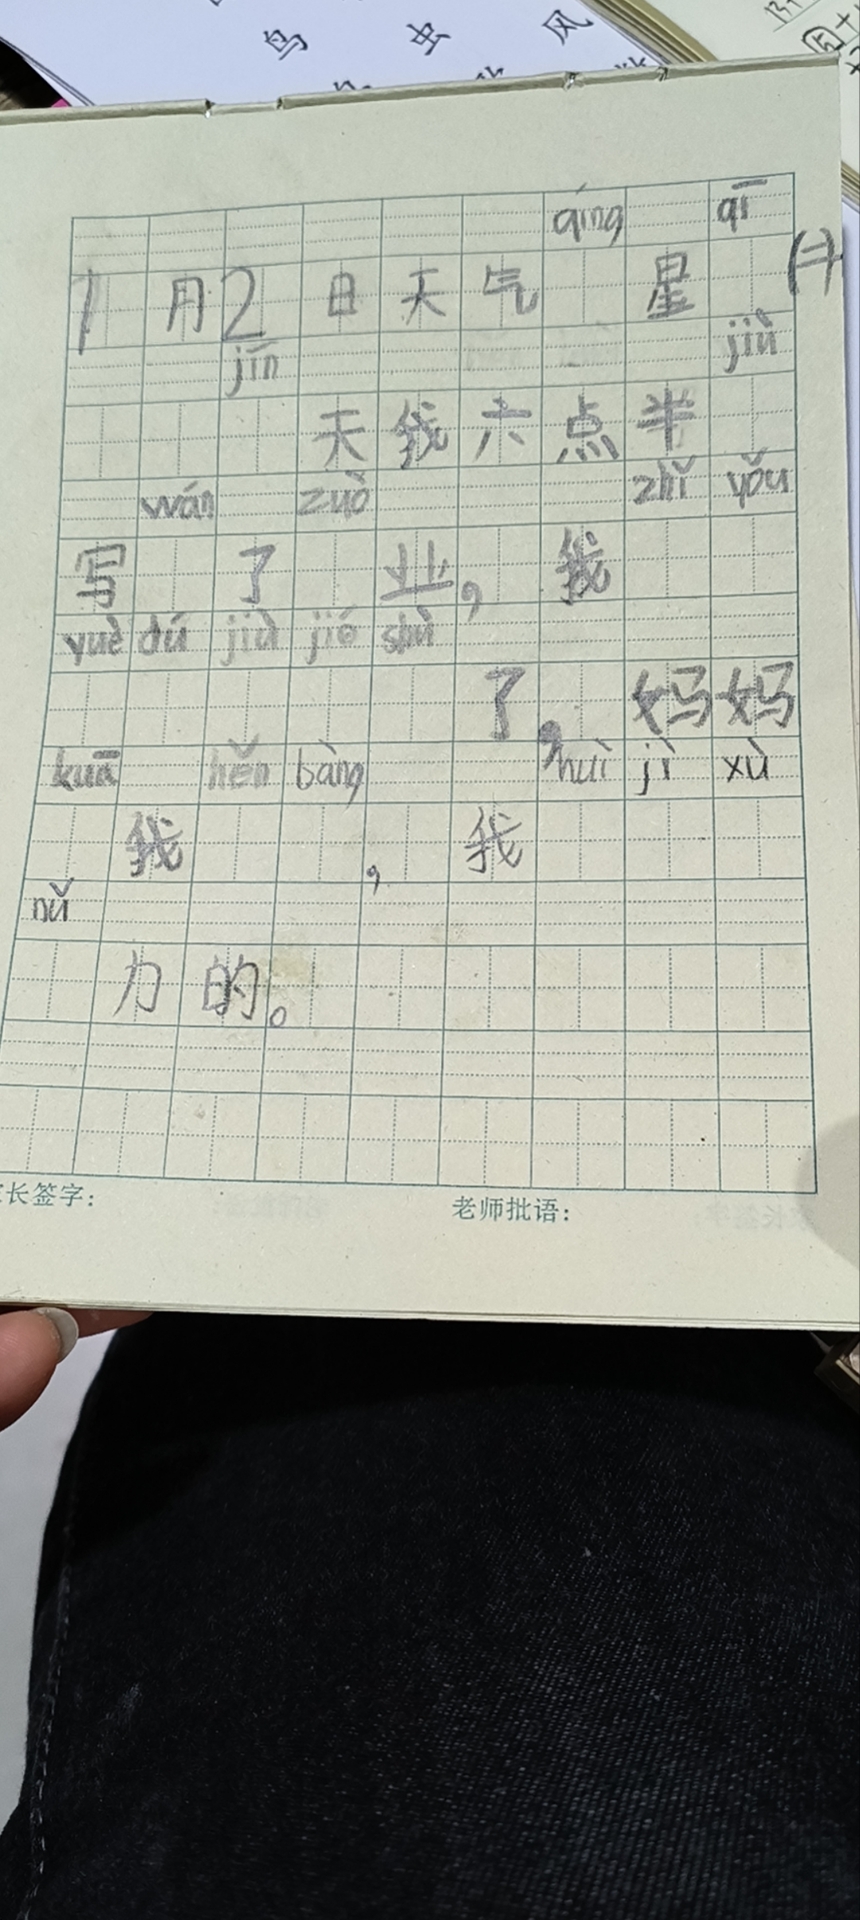 鸟 虫 风
qíng qī
1月2日天气 星 (二)
jīn jiù
天我六点半
wán zuò zhǐ yǒu
写 了 业，我
yuè dú jiù jié shù
了，妈妈
kuā hěn bàng huì jì xù
我 ，我
nǔ
力的。
长签字： 老师批语：